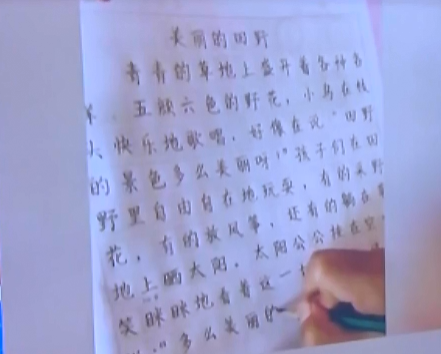 美丽的田野
青青的草地上盛开着各种各
样、五颜六色的野花，小鸟在枝
头快乐地歌唱，好像在说“田野
的景色多么美丽呀！”孩子们在田
野里自由自在地玩耍，有的采野
花，有的放风筝，还有的躺在草
地上晒太阳。太阳公公挂在空
笑眯眯地看着这一
多么美丽的